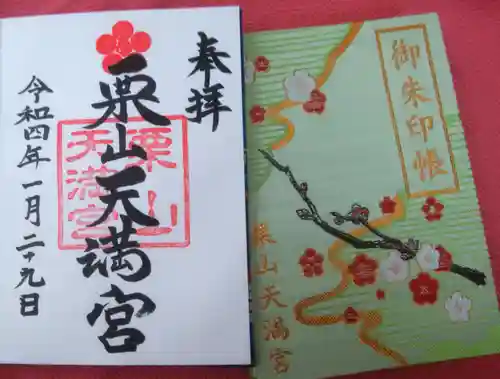 奉拝
栗山天満宮
栗山
天満宮
令和四年一月二十九日
御朱印帳
栗山天満宮